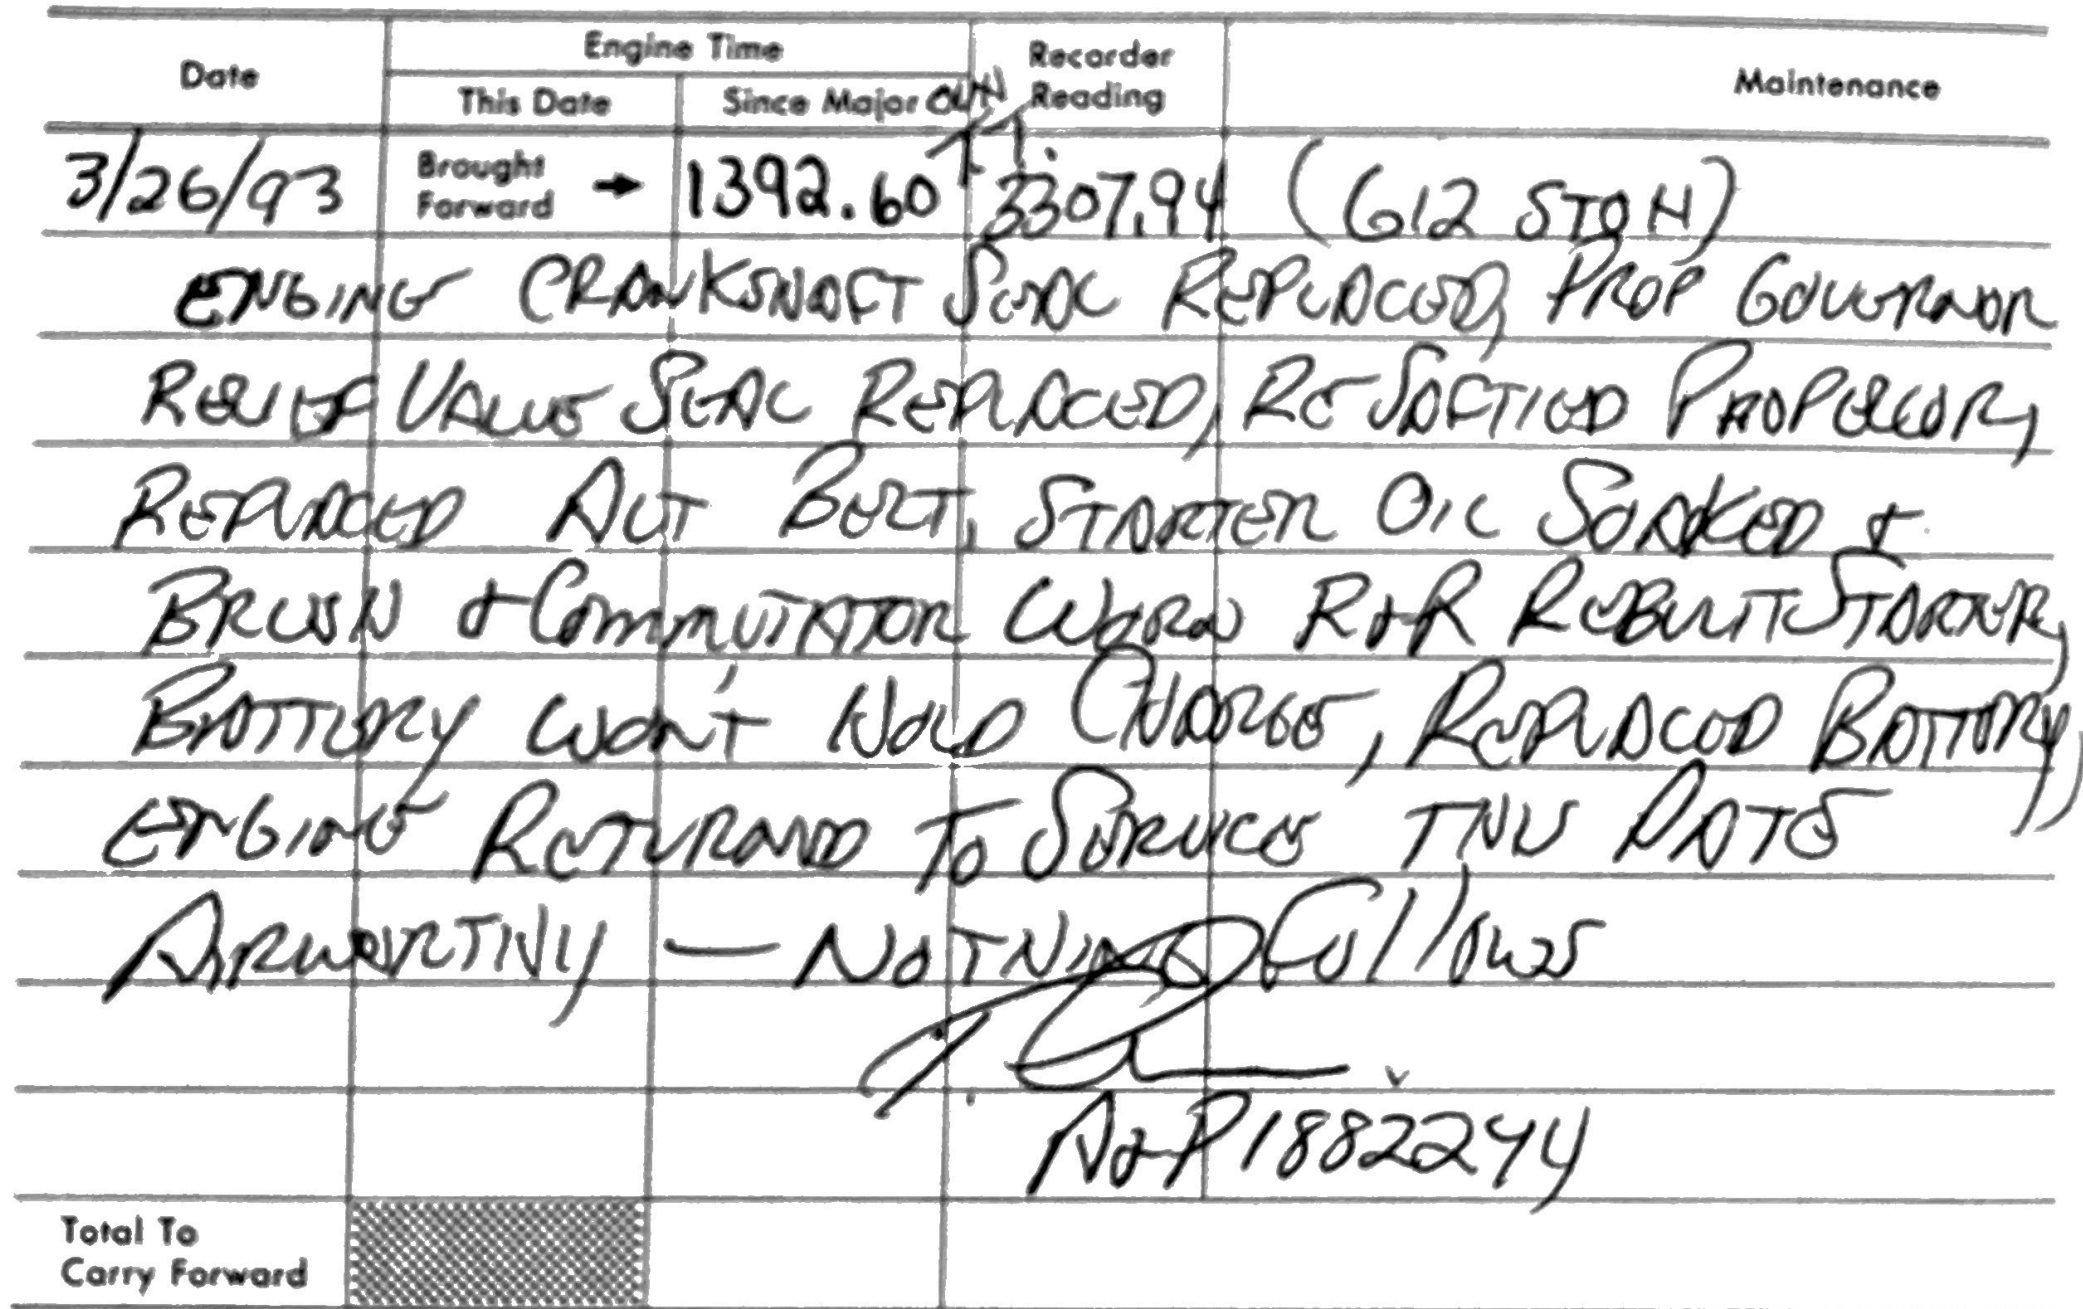 Date Engine Time Recorder Reading Maintenance
This Date Since Major OVH T.T.
3/26/93 Brought Forward → 1392.60 3307.94 (612 STOH)
ENGINE CRANKSHAFT SEAL REPLACED, PROP GOVERNOR
RELIEF VALVE SEAL REPLACED, RESAFTIED PROPELLER,
REPLACED ALT BELT, STARTER OIL SOAKED &
BRUSH & COMMUTATOR WORN R&R REBUILT STARTER,
BATTERY WON'T HOLD CHARGE, REPLACED BATTERY,
ENGINE RETURNED TO SERVICE THIS DATE
AIRWORTHY — NOTHING Follows
A&P 1882244
Total To
Carry Forward